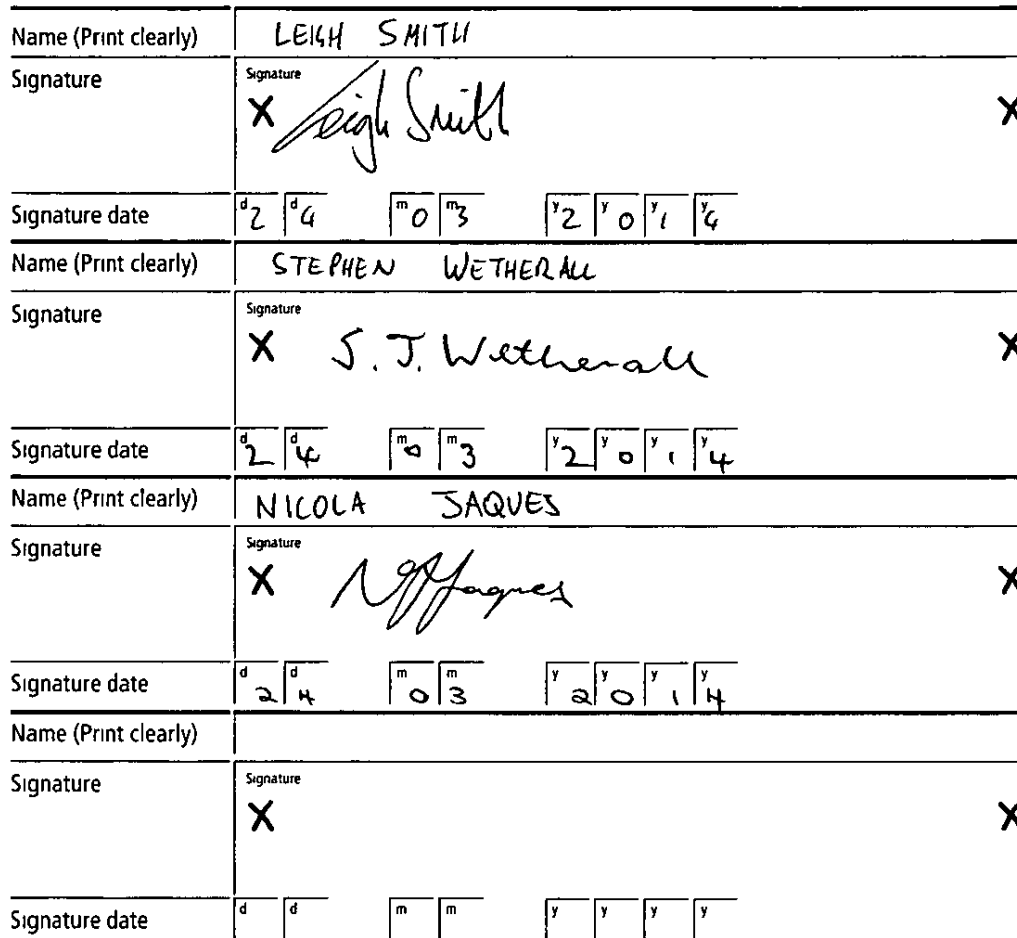 Name (Print clearly) LEIGH SMITH
Signature Signature
X Leigh Smith X
Signature date d2 d4 m0 m3 y2 y0 y1 y4
Name (Print clearly) STEPHEN WETHERALL
Signature Signature
X S. J. Wetherall X
Signature date d2 d4 m0 m3 y2 y0 y1 y4
Name (Print clearly) NICOLA JAQUES
Signature Signature
X Jaques X
Signature date d2 d4 m0 m3 y2 y0 y1 y4
Name (Print clearly)
Signature Signature
X X
Signature date d d m m y y y y